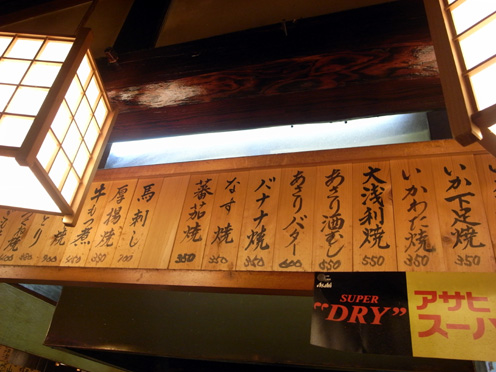 いか下足焼 350
いかわた焼 350
大浅利焼 550
あさり酒むし 550
あさりバター 600
バナナ焼 350
なす焼 350
蕃茄焼 350
馬刺し
厚揚焼
牛もつ煮
焼
とり
Asahi
SUPER
"DRY"
アサヒ
スーパ